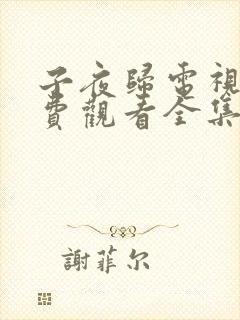 子夜歸電視
費觀看全集
謝菲尔